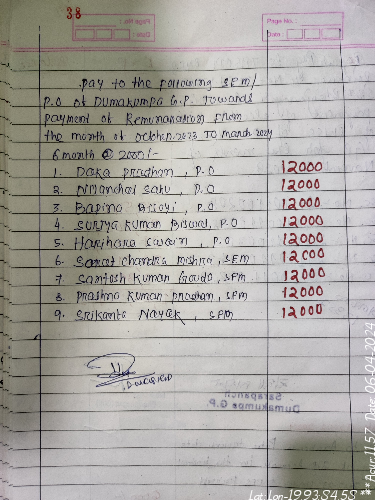 38
Page No.:
Date:
Pay to the following SEM/
P.O of Dumakumpa G.P. Towards
payment of Remunaration From
the month of October.2023 To march 2024
6month @ 2000/-
1. Daka pradhan, P.O 12000
2. Nilanchal sahu, P.O 12000
3. Bapina Bisoyi, P.O 12000
4. Surjya Kumar Biswal, P.O 12000
5. Harihara swain, P.O 12000
6. Sarat chandra mishra, SEM 12000
7. Santosh Kumar Gouda, SPM 12000
8. prashna Kumar pradhan, SPM 12000
9. Srikanta Nayak, SPM 12000
Sarapanch
Dumakumpa G.P.
Lat Lon-19.93,84.58 **Acur:11.57 Date:06-04-2024